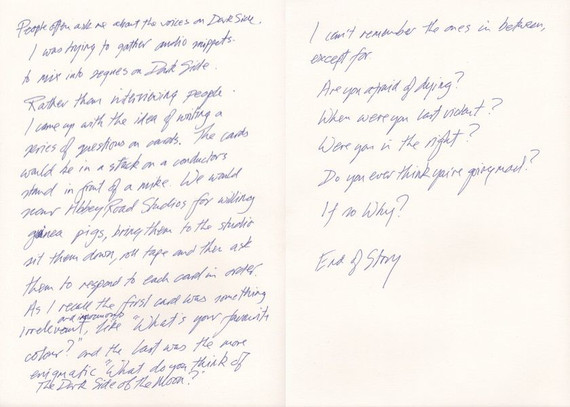 People often ask me about the voices on Dark Side.
I was trying to gather audio snippets.
to mix into segues on Dark Side.
Rather than interviewing people.
I came up with the idea of writing a
series of questions on cards. The cards
would be in a stack on a conductors
stand in front of a mike. We would
scour Abbey Road Studios for willing
guinea pigs, bring them to the studio
sit them down, roll tape and then ask
them to respond to each card in order.
As I recall the first card was something
and
irrelevant, like "What's your favourite
colour?" and the last was the more
enigmatic "What do you think of
The Dark Side of the Moon?"
I can't remember the ones in between,
except for
Are you afraid of dying?
When were you last violent?
Were you in the right?
Do you ever think you're going mad?
If so Why?
End of Story